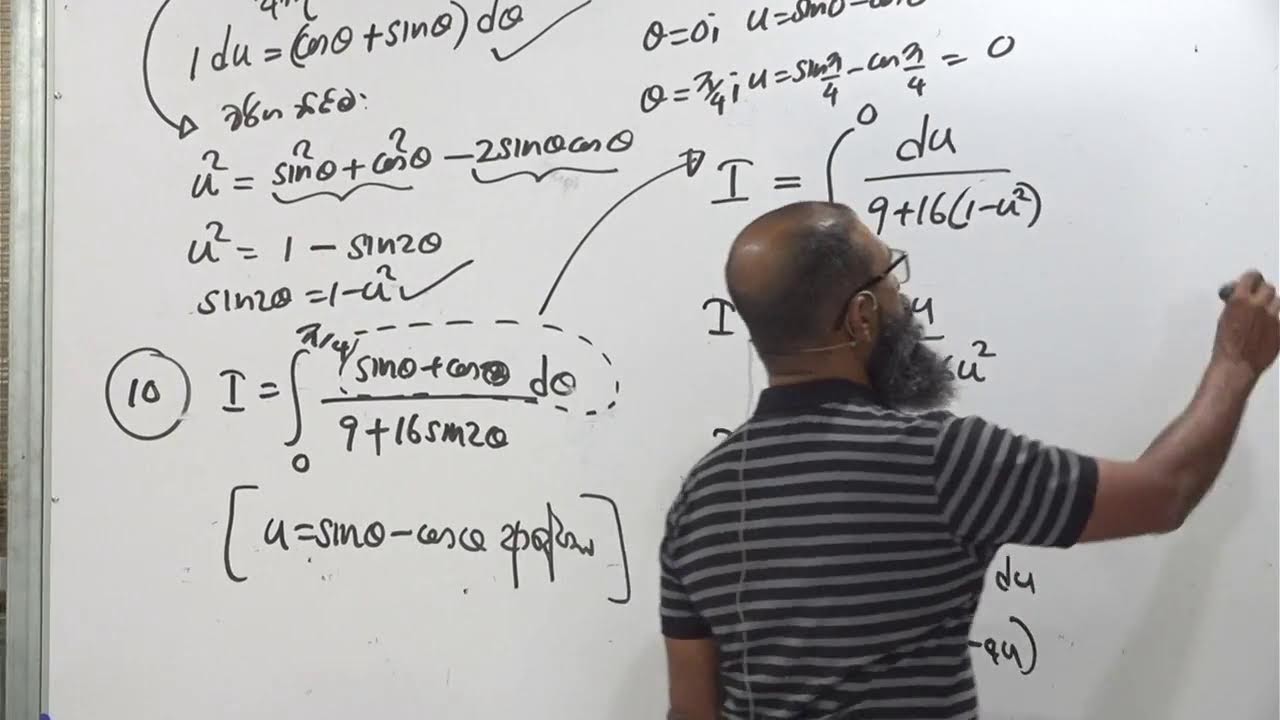 1 du = (cosθ + sinθ) dθ
u² = sin²θ + cos²θ − 2sinθcosθ
u² = 1 − sin2θ
sin2θ = 1−u²
10 I = ∫₀^(π/4) (sinθ+cosθ)/(9+16sin2θ) dθ
[u=sinθ−cosθ]
θ=0; u=sin0−cos0
θ=π/4; u=sin π/4 − cos π/4 = 0
I = ∫⁰ du/(9+16(1−u²))
I
u²
du
−4u)